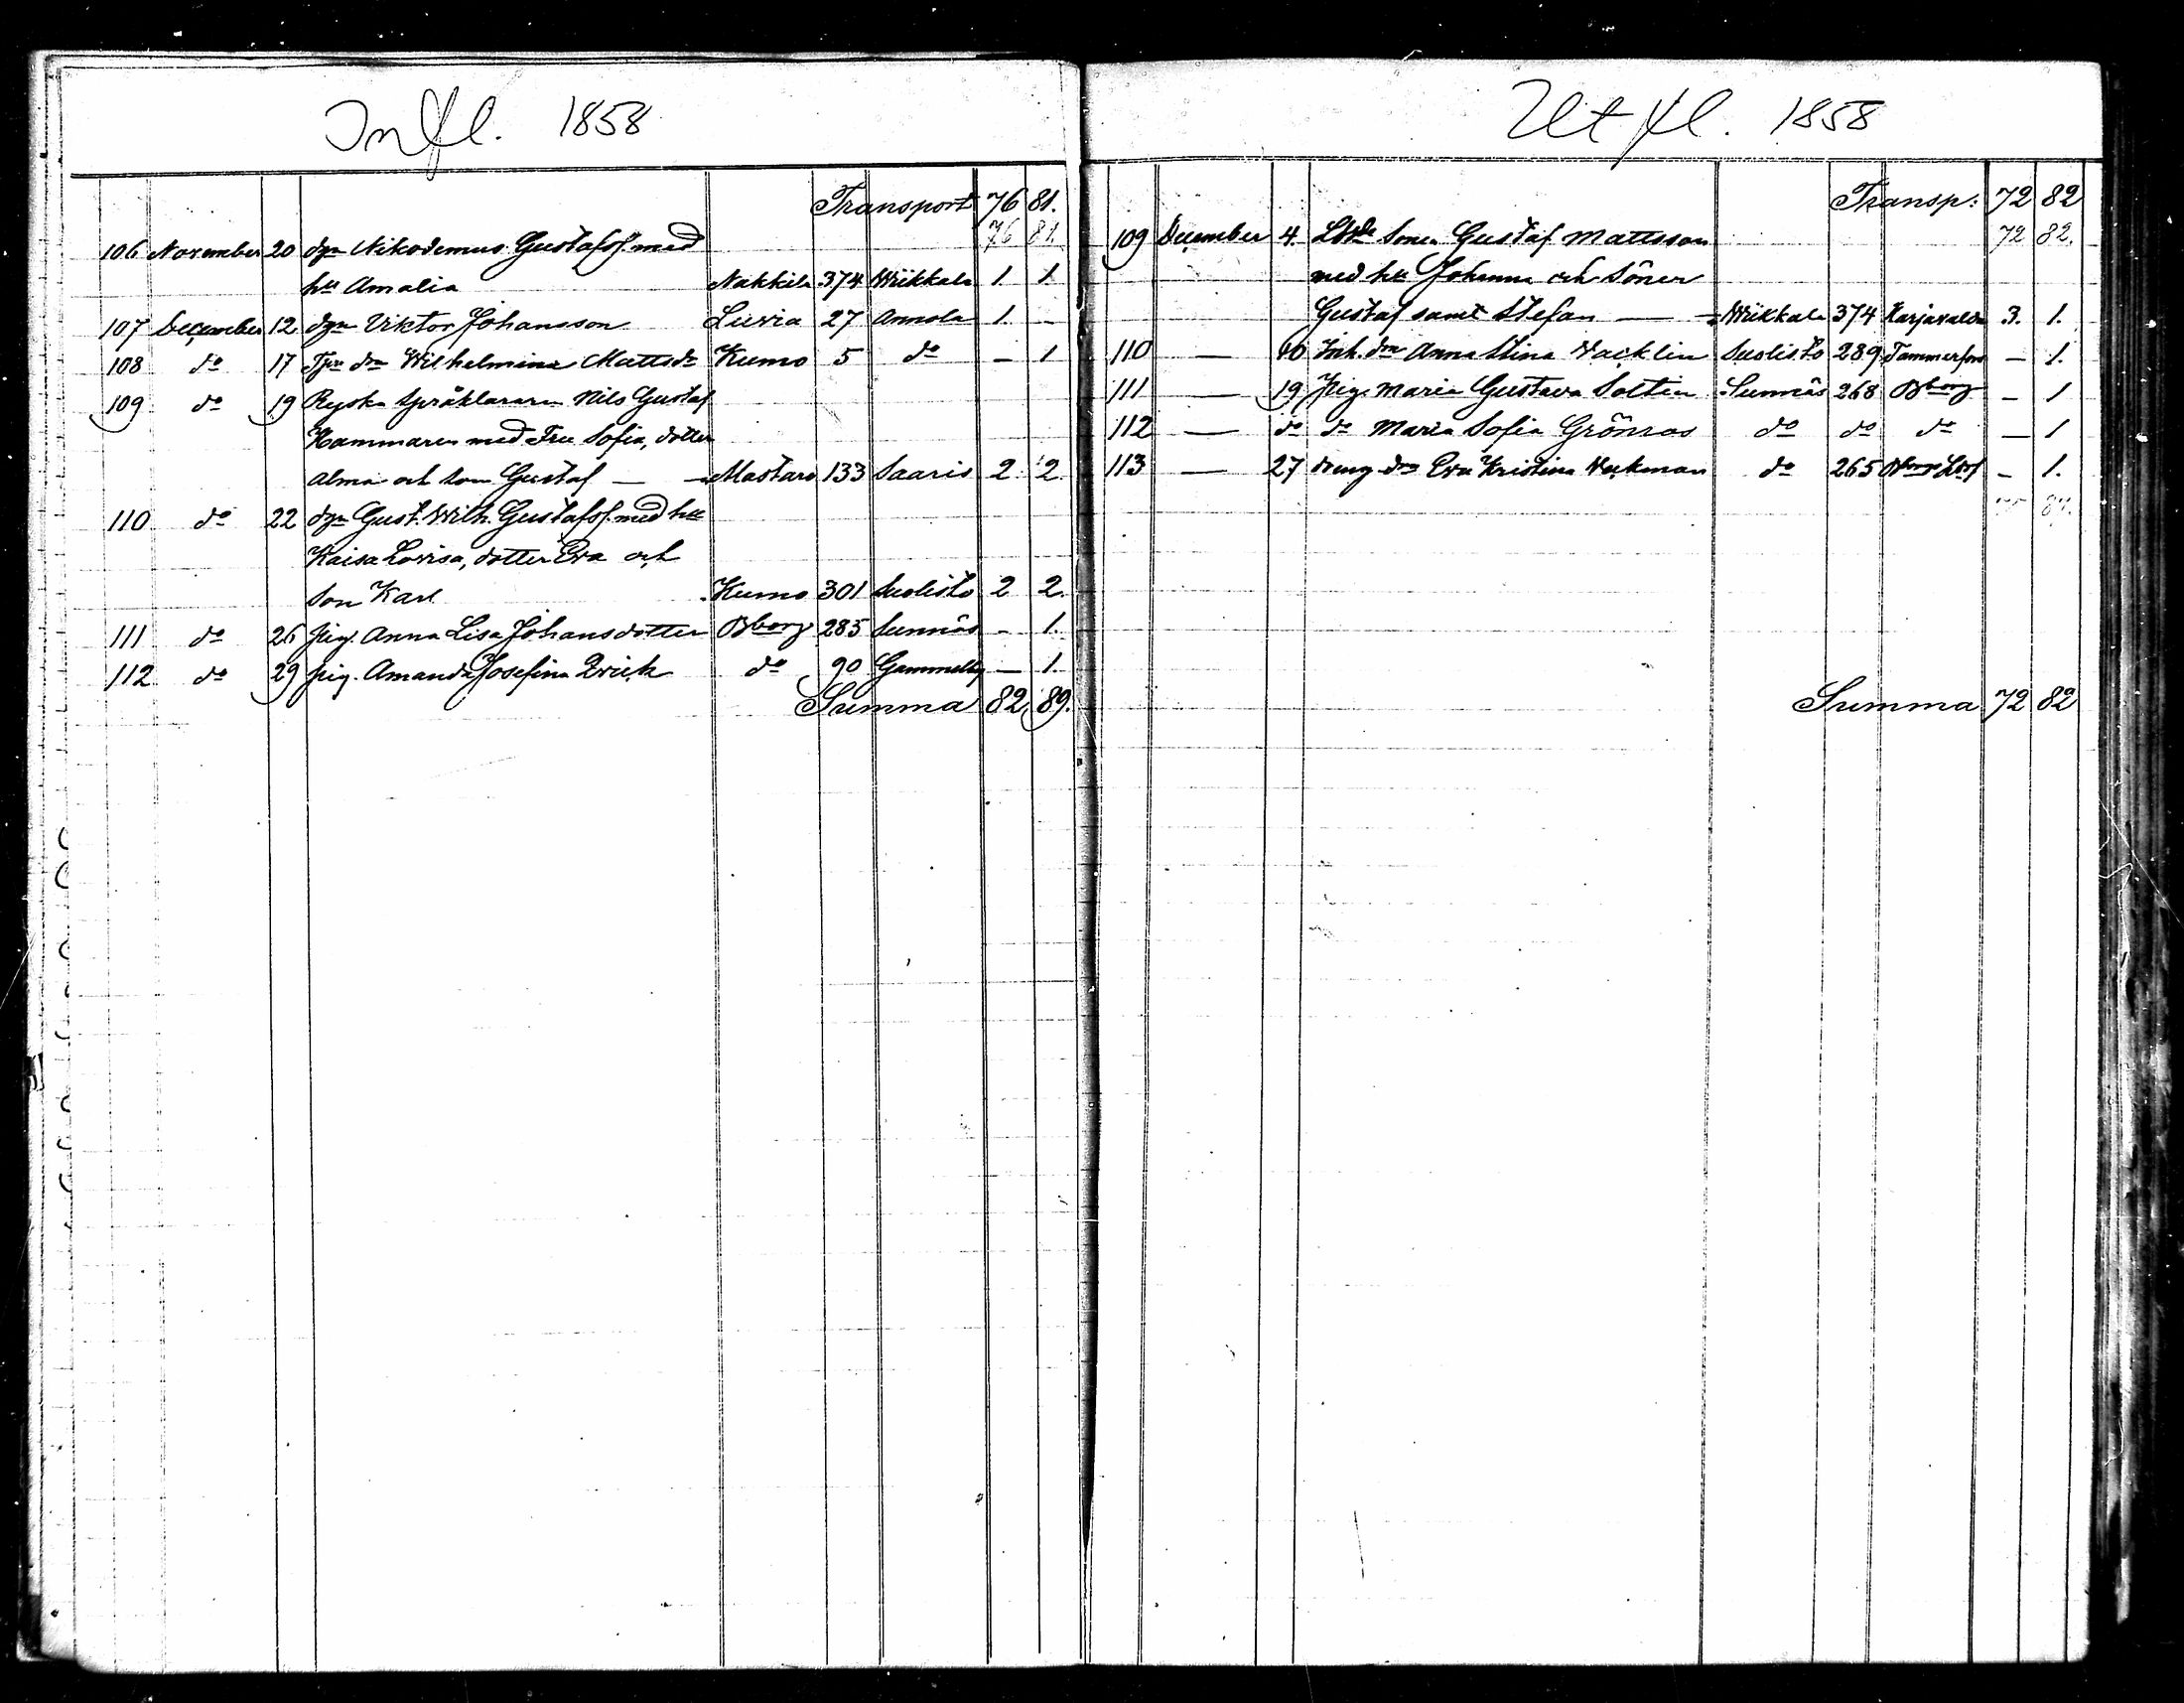 Infl. 1858
Transport 76 81.
76 81.
106 November 20 dgn Nikodemus Gustafss. med
hu Amalia Nakkila 374 Wiikkala 1. 1.
107 December 12 dgn Viktor Johansson Luvia 27 Annola 1. —
108 do 17 Tjen. dn Wilhelmina Mattsdr Kumo 5 do — 1
109 do 19 Ryska Språkläraren Nils Gustaf
Hammaren med Fru Sofia, dotter
Alma och Son Gustaf — Mastaro 133 Saaris 2 2
110 do 22 dgn Gust. Wilh. Gustafss. med hu
Kaisa Lovisa, dotter Eva och
Son Karl Kumo 301 Suolisto 2 2.
111 do 26 pig. Anna Lisa Johansdotter Bborg 285 Sunnäs - 1.
112 do 29 pig. Amanda Josefina Qvick do 90 Gammelby — 1
Summa 82 89.
Ut fl. 1858
Transp: 72 82
72 82.
109 December 4. Sonen Gustaf Mattsson
med hu Johanna och Söner
Gustaf samt Stefan — Wiikkala 374 Harjavalta 3. 1.
110 — 10 Inh. dn Anna Stina Wacklin Suolisto 289 Tammerfors — 1.
111 — 19 Pig. Maria Gustava Soltin Sunnäs 268 Bborg - 1
112 — do do Maria Sofia Grönroos do do do — 1
113 — 27 dn Eva Kristina Werkman do 265 - 1.
Summa 72 82